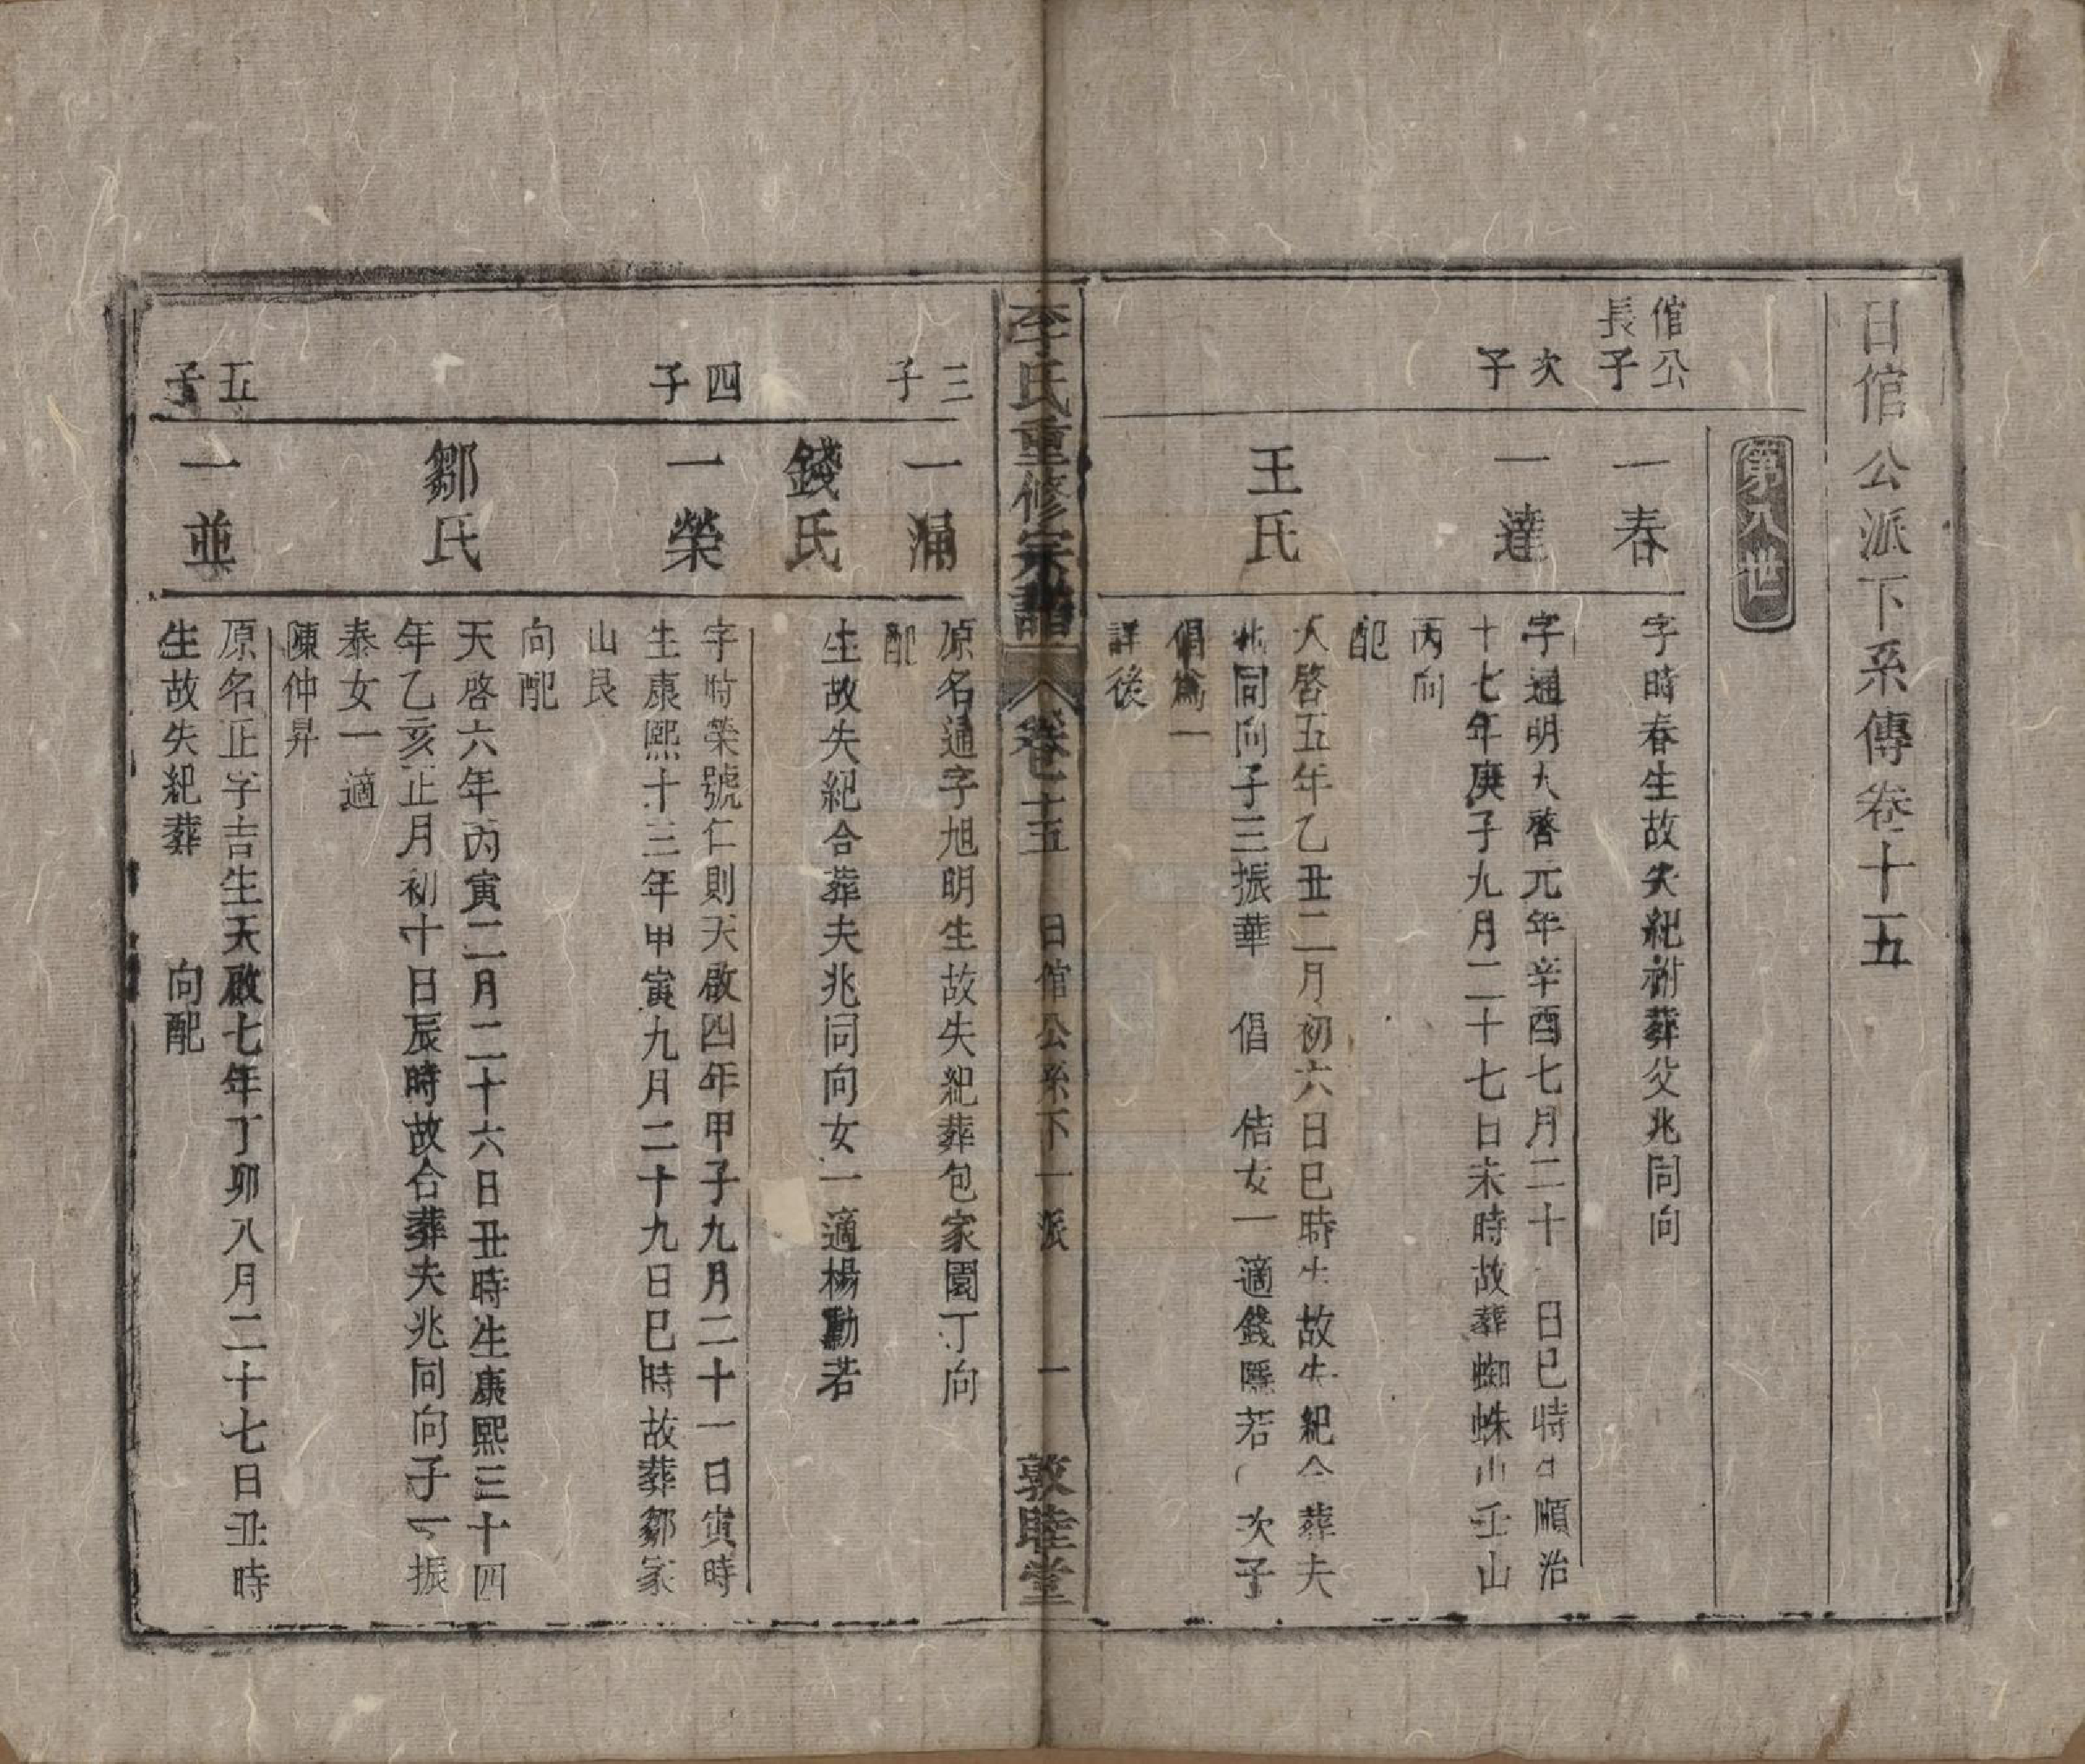 日倌公派下系傳卷十五
第八世
倌公長子
一春
字時春生故失紀祔葬父兆同向
次子
一達
字通明天啓元年辛酉七月二十 日巳時生順治
十七年庚子九月二十七日未時故葬蜘蛛山壬山
丙向
配
王氏
天啓五年乙丑二月初六日巳時生故失紀合葬夫
兆同向子三振華 倡 佶女一適錢 若 次子
倡 一
詳後
李氏重修宗譜 卷十五 日倌公系下一派 一 敦睦堂
三子
一涌
原名通字旭明生故失紀葬包家園丁向
配
錢氏
生故失紀合葬夫兆同向女一適楊勳若
四子
一榮
字時榮號仁則天啟四年甲子九月二十一日寅時
生康熙十三年甲寅九月二十九日巳時故葬鄒家
山艮
向配
鄒氏
天啓六年丙寅二月二十六日丑時生康熙三十四
年乙亥正月初十日辰時故合葬夫兆同向子一振
泰女一適
陳仲昇
五子
一並
原名正字吉生天啟七年丁卯八月二十七日丑時
生故失紀葬 向配